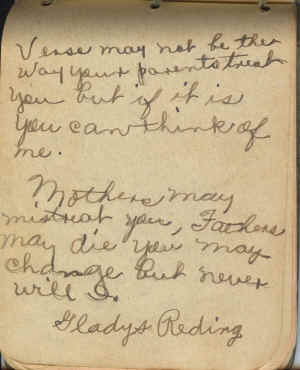 Verse may not be the
way your parents treat
you but if it is
you can think of
me.
Mothers may
mistreat you, Fathers
may die you may
change but never
will I.
Gladys Reding